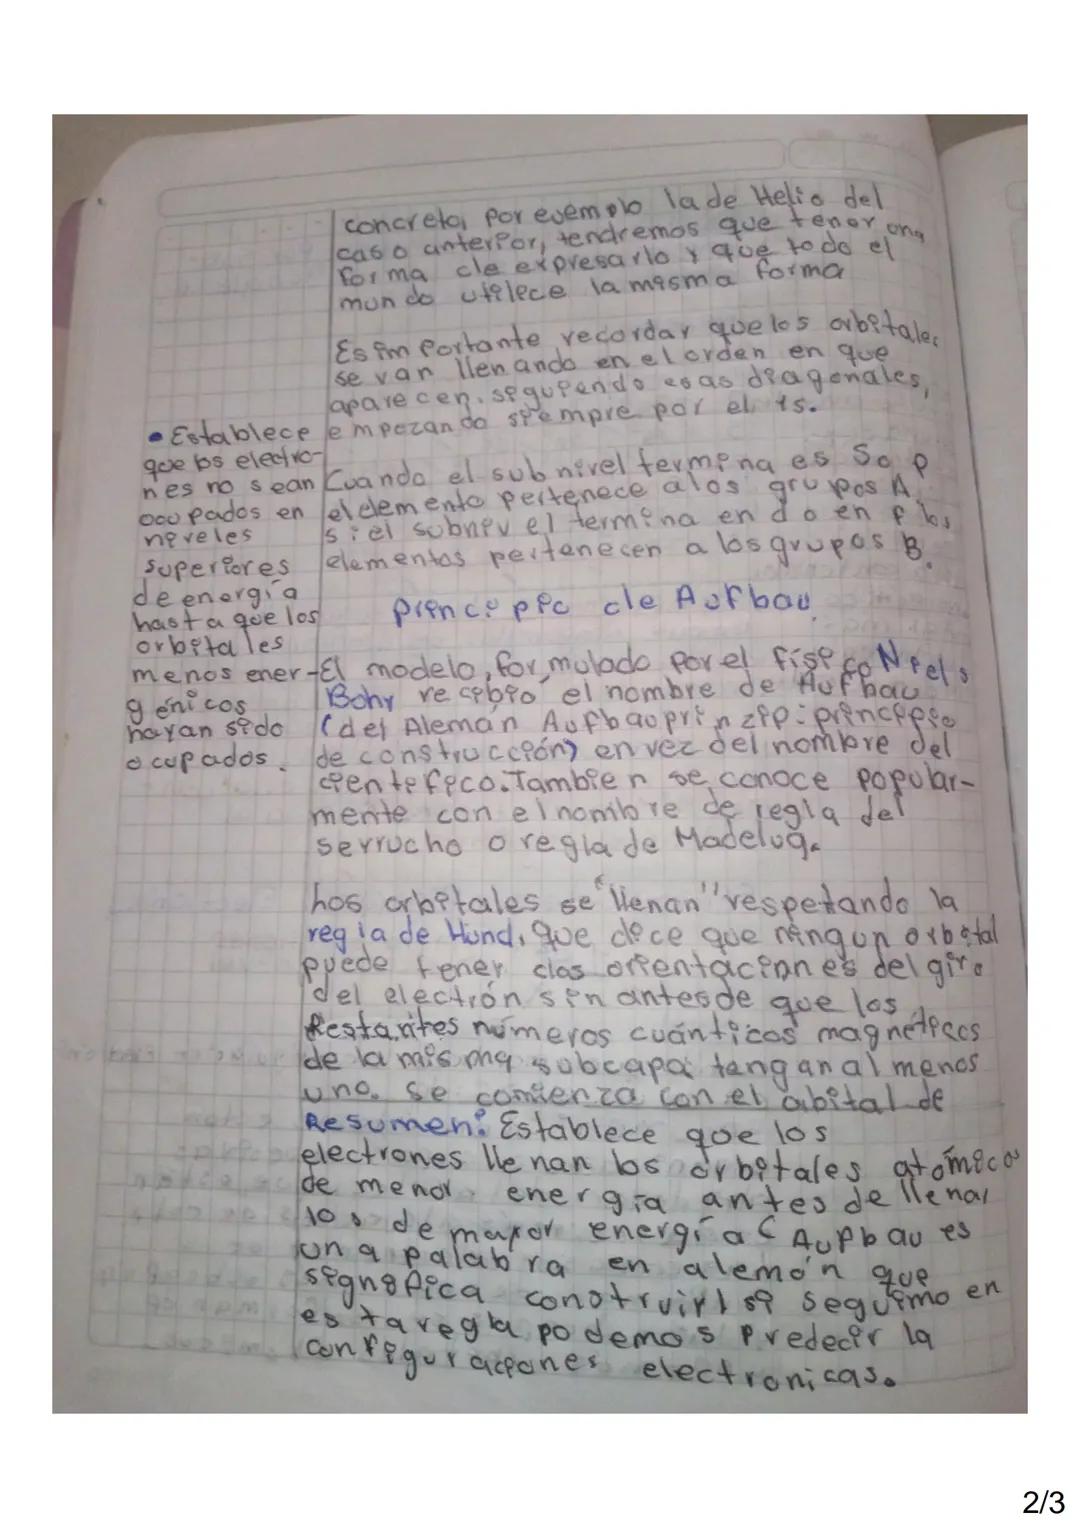 concreta, por evemplo la de Helio del
caso anterior, tendremos que tener una
forma de expresarlo y que todo el
mundo utilece la misma forma
Es importante recordar que los orbitales
se van llenando en el orden en que
aparecen. siguiendo esas diagonales,
empezando siempre por el 1s.
• Establece
que los electro-
nes no sean
ocupados en
niveles
superiores
de energía
hasta que los
orbitales
menos ener-
génicos
hayan sido
ocupados.
Cuando el subnivel termina es S o p
el elemento pertenece a los grupos A,
si el subnivel termina en d o en f los
elementos pertenecen a los grupos B.
principio de Aufbau
El modelo, formulado por el físico Niels
Bohr recibió el nombre de Aufbau
(del Alemán Aufbauprinzip: principio
de construcción) en vez del nombre del
cientifico. Tambien se conoce popular-
mente con el nombre de regla del
serrucho o regla de Madelug.
Los orbitales se "llenan" respetando la
regla de Hund, que dice que ningun orbital
puede tener dos orientaciones del giro
del electrón sin antes de que los
Restantes números cuánticos magnéticos
de la misma subcapa tengan al menos
uno. se comienza con el abital de
Resumen: Establece que los
electrones llenan los orbitales atómicos
de menor energía antes de llenar
los de mayor energía (Aufbau es
una palabra en alemán que
significa construir) si seguimo en
esta regla podemos predecir la
configuraciones electronicas.
2/3